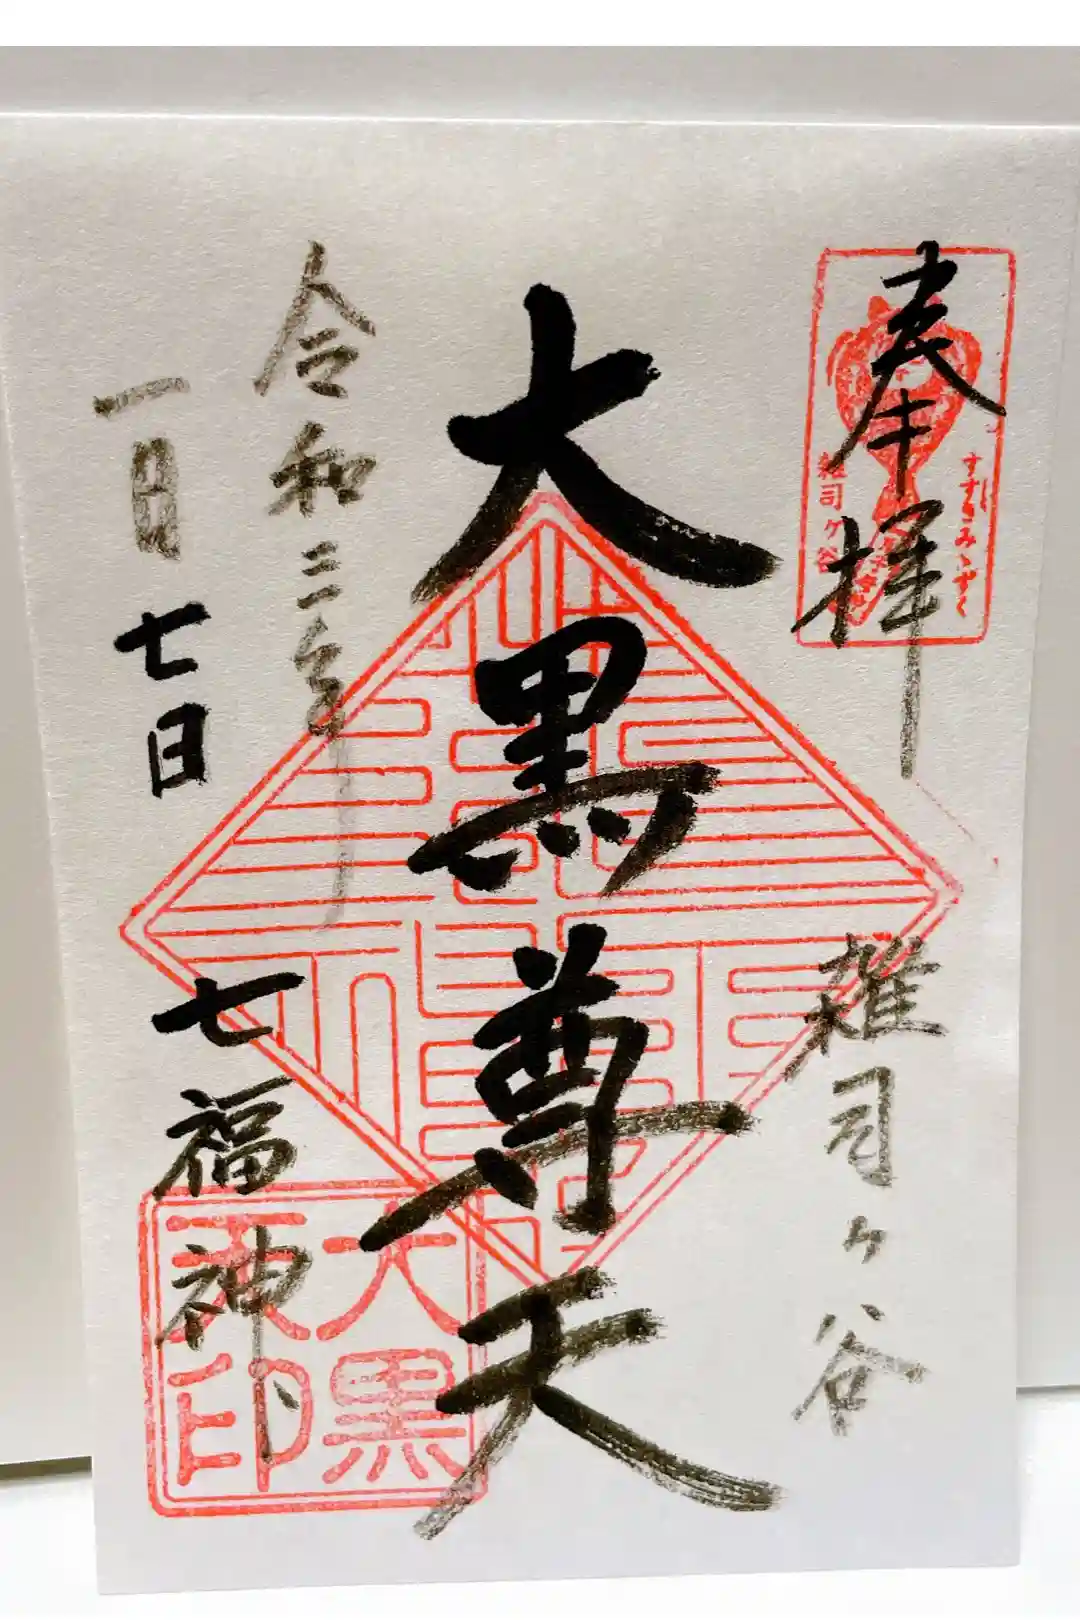 奉拝
雑司ヶ谷
すすきみゝずく
雑司ヶ谷
大黒尊天
令和三年
一月七日
七福神
大黒
天印